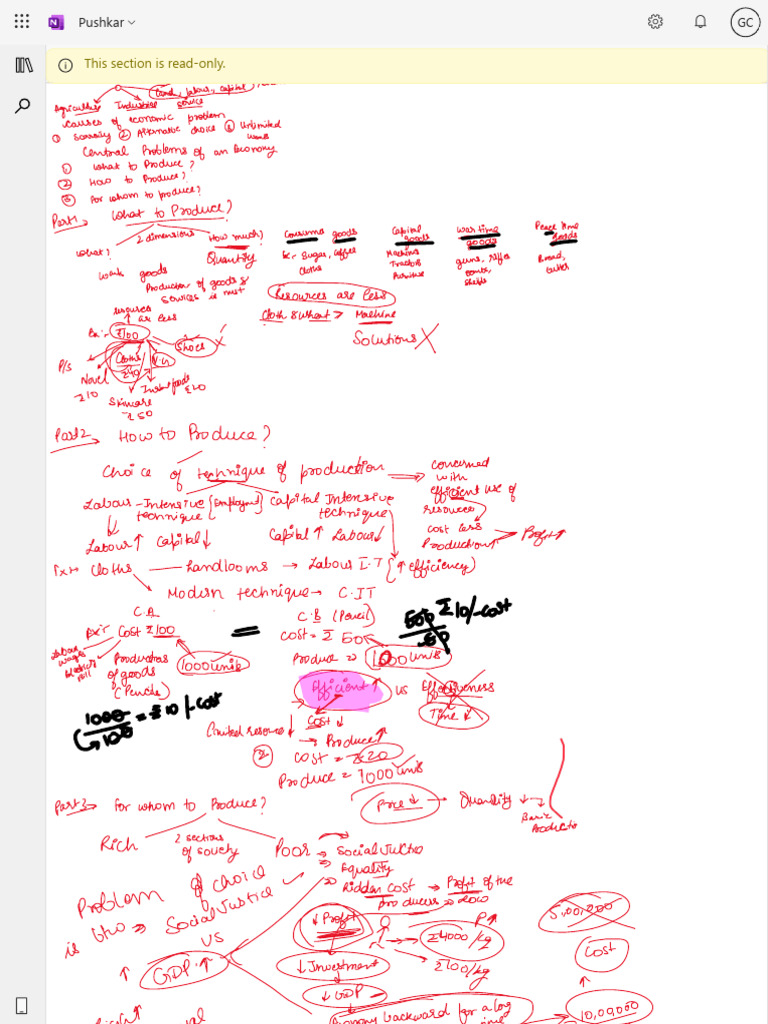 Pushkar
GC
This section is read-only.
Land, labour, capital
Agriculture Industrial Service
Causes of economic problem
① Scarcity ② Alternative choice ③ Unlimited wants
Central Problems of an Economy
① What to Produce?
② How to Produce?
③ For whom to produce?
Part1 What to Produce?
What? 2 dimensions How much?
Quantity
Consumer goods
Ex: Sugar, coffee
Cloths
Capital goods
Machines
Tractors
Furniture
War time goods
guns, rifles
bombs,
Peace time goods
Bread,
butter
goods
Production of goods &
services is must
Resources are less
Cloth & Wheat > Machine
Solutions X
resources
are less
Ex:- ₹100
Shoes X
Cloths
P/s
Novel
₹10
Skincare
₹50
Part2 How to Produce?
Choice of technique of production ⇒ concerned
with
efficient use of
resources
cost less
Production↑ → Profit↑
Labour-Intensive technique [Employment] Capital Intensive technique
Labour↑ Capital↓ Capital↑ Labour↓
Cloths → Handlooms → Labour I.T [↑efficiency)
Modern technique → C.IT
C.A
Ex:- Cost ₹100
Labour
wages
Electricity
bill
Productions
of goods
(Pencils)
1000 units
1000/100 = ₹10/-cost
C.B (Pencil)
Cost = ₹50
Produce ⇒ 1000 units
₹10/-cost
Efficient↑ vs Effectiveness
Time↓
limited resource↓
Cost↓
→ Produce↑
② Cost = ₹20
Produce = 1000 units
Price↓ → Quantity↓ →
Basic
Products
Part3 For whom to Produce?
Rich 2 sections of society Poor → Social Justice
⇒ Equality
Ridden cost → Profit of the
producers ⇒ low
Problem of choice
is b/w ⇒ Social Justice
vs
↑ GDP↑
↓Profit
P↑
₹4000/kg
₹100/kg
↓Investment
↓GDP
Economy backward for a long
time
5,00,000
Cost
10,00,000